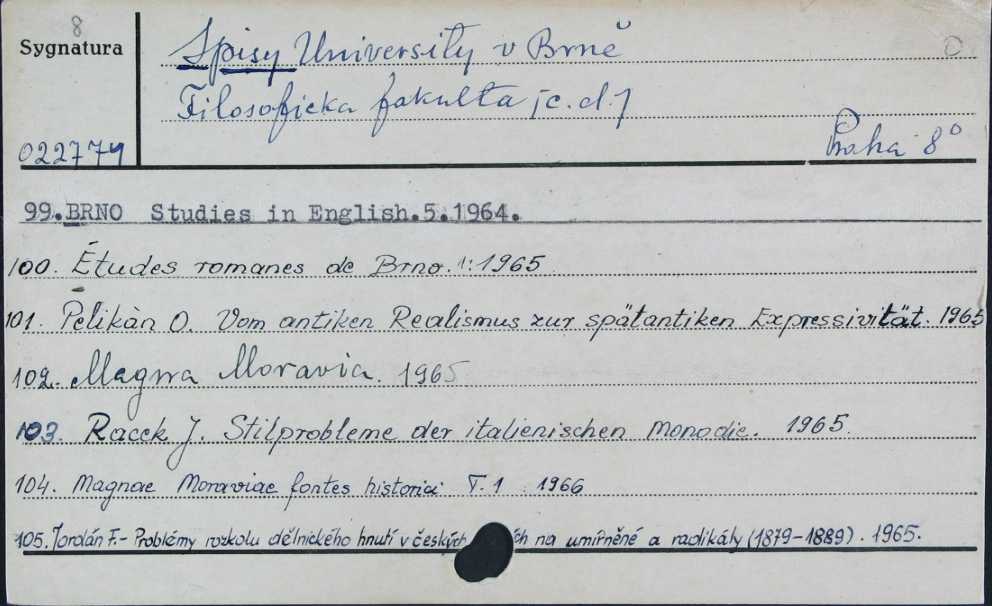 8
Sygnatura
Spisy University v Brně
Filosoficka fakulta [c.d.]
022774
Praha 8°
99. BRNO Studies in English.5.1964.
100. Études romanes de Brno. 1: 1965
101. Pelikàn O. Vom antiken Realismus zur spätantiken Expressivität. 1965
102. Magna Moravia. 1965
103. Racek J. Stilprobleme der italienischen Monodie. 1965.
104. Magnae Moraviae fontes historici T. 1 1966
105. Jordán F. - Problémy rozkolu dělnického hnutí v českých ých na umírněné a radikály (1879-1889). 1965.